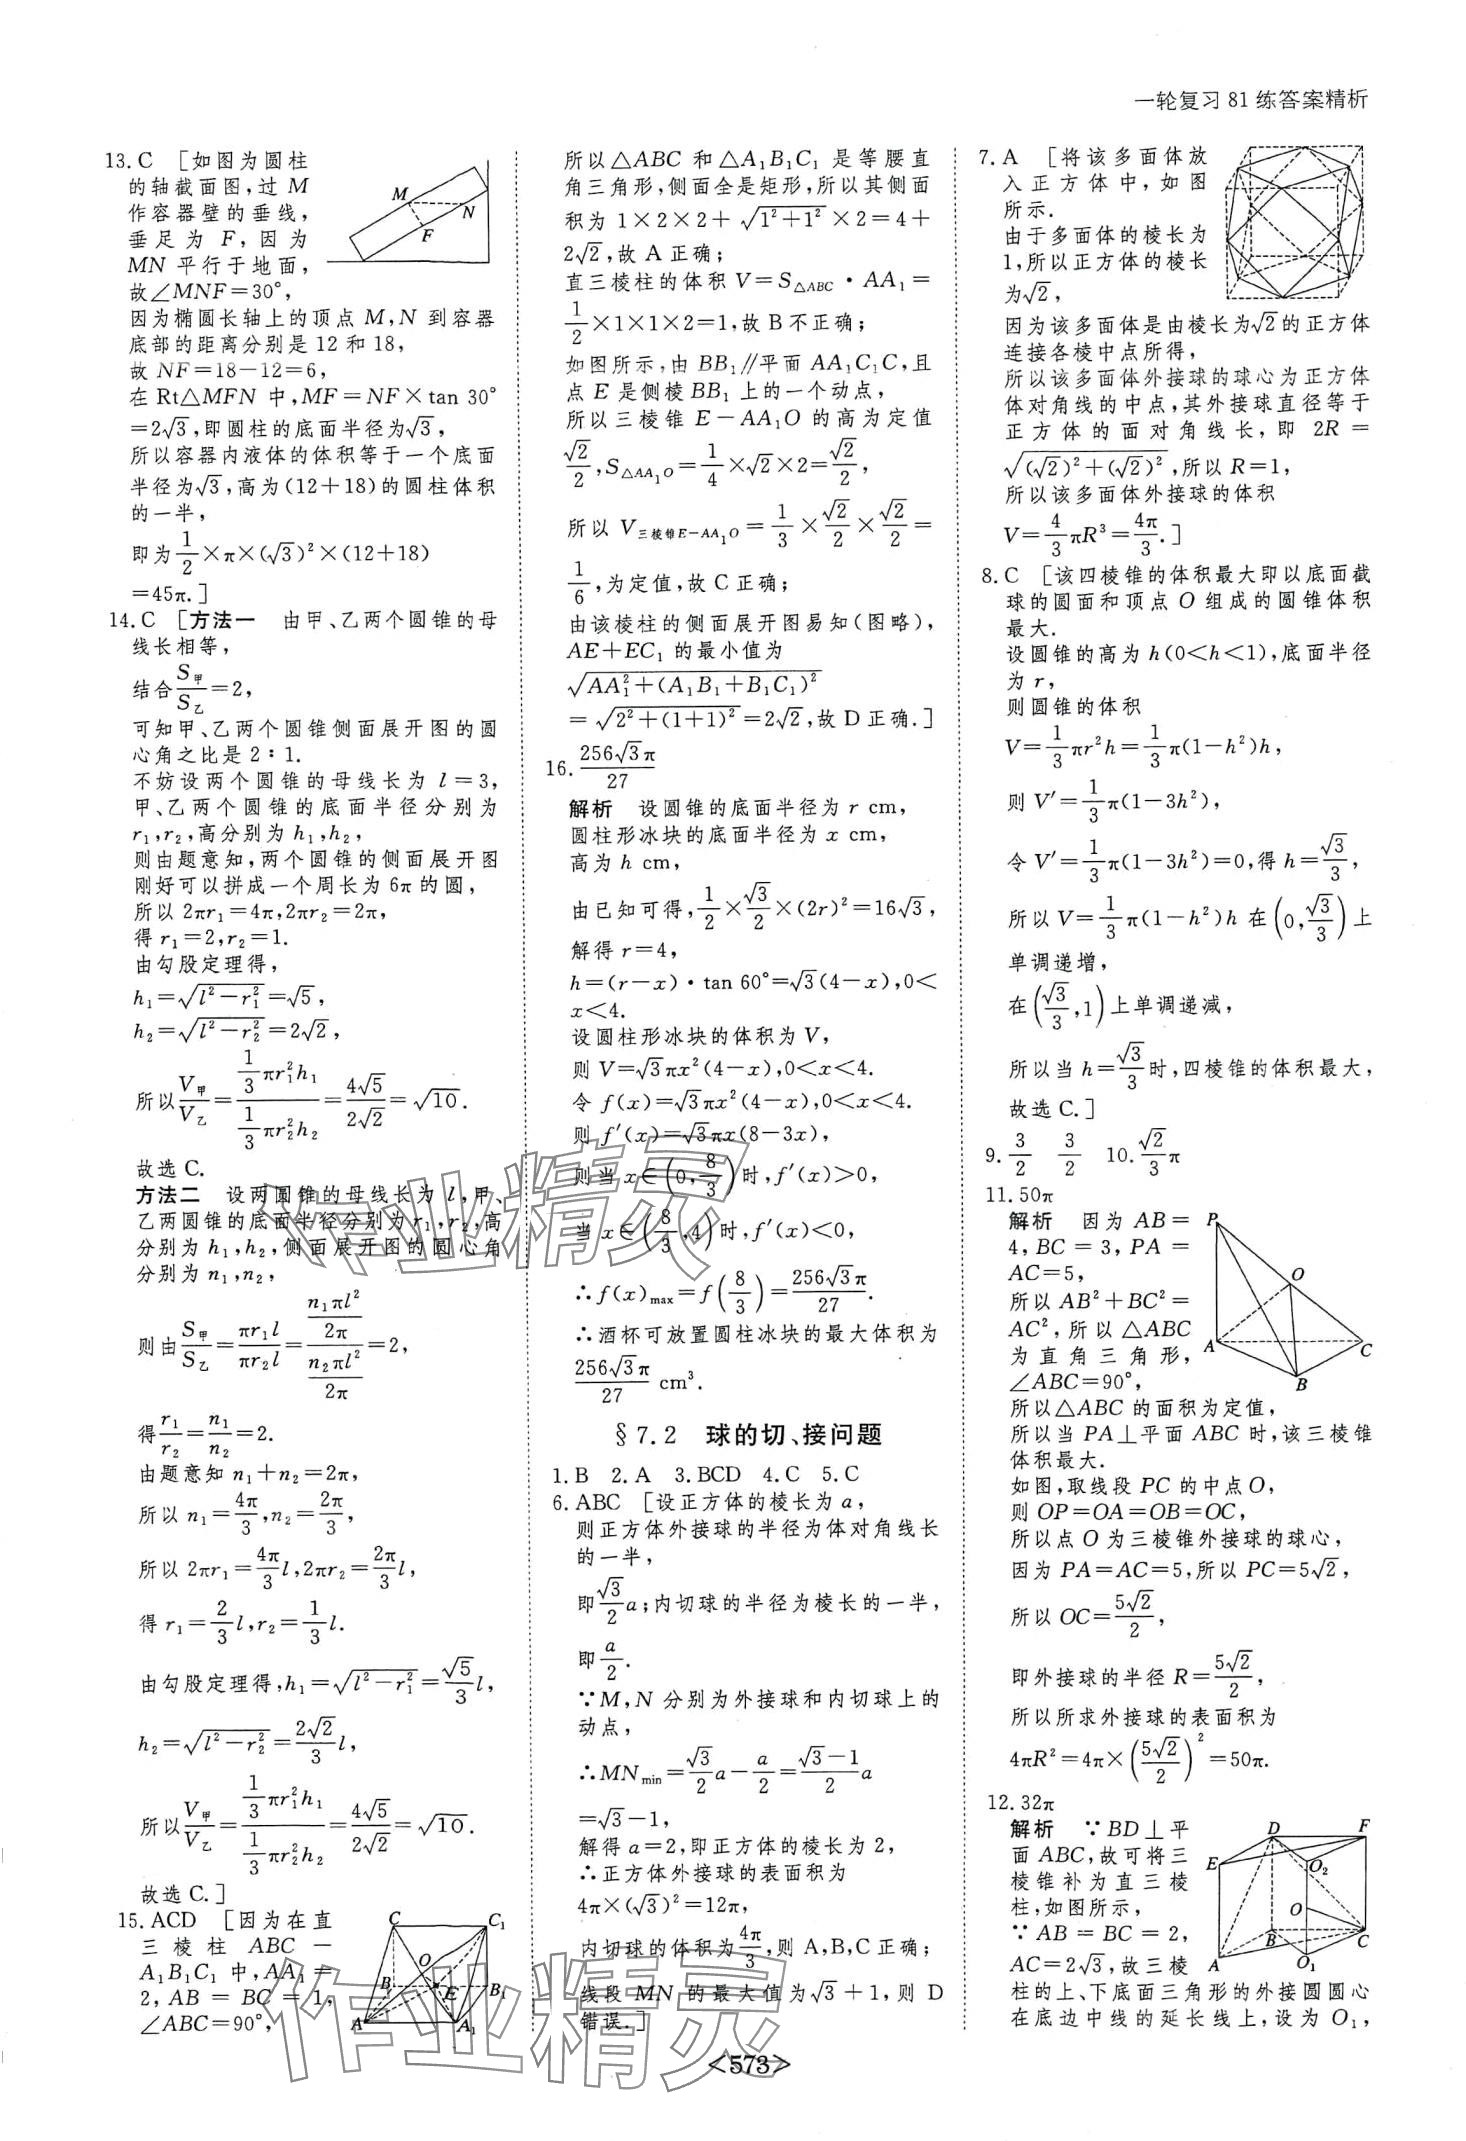 一轮复习81练答案精析
13.C [如图为圆柱
的轴截面图,过M
作容器壁的垂线,
垂足为F,因为
MN平行于地面,
故∠MNF=30°,
因为椭圆长轴上的顶点M,N到容器
底部的距离分别是12和18,
故NF=18-12=6,
在Rt△MFN中,MF=NF×tan 30°
=2√3,即圆柱的底面半径为√3,
所以容器内液体的体积等于一个底面
半径为√3,高为(12+18)的圆柱体积
的一半,
即为1/2×π×(√3)²×(12+18)
=45π.]
14.C [方法一 由甲、乙两个圆锥的母
线长相等,
结合S甲/S乙=2,
可知甲、乙两个圆锥侧面展开图的圆
心角之比是2∶1.
不妨设两个圆锥的母线长为l=3,
甲、乙两个圆锥的底面半径分别为
r₁,r₂,高分别为h₁,h₂,
则由题意知,两个圆锥的侧面展开图
刚好可以拼成一个周长为6π的圆,
所以2πr₁=4π,2πr₂=2π,
得r₁=2,r₂=1.
由勾股定理得,
h₁=√(l²-r₁²)=√5,
h₂=√(l²-r₂²)=2√2,
所以V甲/V乙=(1/3πr₁²h₁)/(1/3πr₂²h₂)=4√5/2√2=√10.
故选C.
方法二 设两圆锥的母线长为l,甲、
乙两圆锥的底面半径分别为r₁,r₂,高
分别为h₁,h₂,侧面展开图的圆心角
分别为n₁,n₂,
则由S甲/S乙=πr₁l/πr₂l=(n₁πl²/2π)/(n₂πl²/2π)=2,
得r₁/r₂=n₁/n₂=2.
由题意知n₁+n₂=2π,
所以n₁=4π/3,n₂=2π/3,
所以2πr₁=4π/3 l,2πr₂=2π/3 l,
得r₁=2/3 l,r₂=1/3 l.
由勾股定理得,h₁=√(l²-r₁²)=√5/3 l,
h₂=√(l²-r₂²)=2√2/3 l,
所以V甲/V乙=(1/3πr₁²h₁)/(1/3πr₂²h₂)=4√5/2√2=√10.
故选C.]
15.ACD [因为在直
三棱柱ABC-
A₁B₁C₁中,AA₁=
2,AB=BC=1,
∠ABC=90°,
所以△ABC和△A₁B₁C₁是等腰直
角三角形,侧面全是矩形,所以其侧面
积为1×2×2+√(1²+1²)×2=4+
2√2,故A正确;
直三棱柱的体积V=S△ABC·AA₁=
1/2×1×1×2=1,故B不正确;
如图所示,由BB₁∥平面AA₁C₁C,且
点E是侧棱BB₁上的一个动点,
所以三棱锥E-AA₁O的高为定值
√2/2,S△AA₁O=1/4×√2×2=√2/2,
所以V三棱锥E-AA₁O=1/3×√2/2×√2/2=
1/6,为定值,故C正确;
由该棱柱的侧面展开图易知(图略),
AE+EC₁的最小值为
√(AA₁²+(A₁B₁+B₁C₁)²)
=√(2²+(1+1)²)=2√2,故D正确.]
16.256√3π/27
解析 设圆锥的底面半径为r cm,
圆柱形冰块的底面半径为x cm,
高为h cm,
由已知可得,1/2×√3/2×(2r)²=16√3,
解得r=4,
h=(r-x)·tan 60°=√3(4-x),0<
x<4.
设圆柱形冰块的体积为V,
则V=√3πx²(4-x),0<x<4.
令f(x)=√3πx²(4-x),0<x<4.
则f′(x)=√3πx(8-3x),
则当x∈(0,8/3)时,f′(x)>0,
当x∈(8/3,4)时,f′(x)<0,
∴f(x)max=f(8/3)=256√3π/27.
∴酒杯可放置圆柱冰块的最大体积为
256√3π/27 cm³.
§7.2 球的切、接问题
1.B 2.A 3.BCD 4.C 5.C
6.ABC [设正方体的棱长为a,
则正方体外接球的半径为体对角线长
的一半,
即√3/2 a;内切球的半径为棱长的一半,
即a/2.
∵M,N分别为外接球和内切球上的
动点,
∴MNmin=√3/2 a-a/2=(√3-1)/2 a
=√3-1,
解得a=2,即正方体的棱长为2,
∴正方体外接球的表面积为
4π×(√3)²=12π,
内切球的体积为4π/3,则A,B,C正确;
线段MN的最大值为√3+1,则D
错误.]
7.A [将该多面体放
入正方体中,如图
所示.
由于多面体的棱长为
1,所以正方体的棱长
为√2,
因为该多面体是由棱长为√2的正方体
连接各棱中点所得,
所以该多面体外接球的球心为正方体
体对角线的中点,其外接球直径等于
正方体的面对角线长,即2R=
√((√2)²+(√2)²),所以R=1,
所以该多面体外接球的体积
V=4/3πR³=4π/3.]
8.C [该四棱锥的体积最大即以底面截
球的圆面和顶点O组成的圆锥体积
最大.
设圆锥的高为h(0<h<1),底面半径
为r,
则圆锥的体积
V=1/3πr²h=1/3π(1-h²)h,
则V′=1/3π(1-3h²),
令V′=1/3π(1-3h²)=0,得h=√3/3,
所以V=1/3π(1-h²)h在(0,√3/3)上
单调递增,
在(√3/3,1)上单调递减,
所以当h=√3/3时,四棱锥的体积最大,
故选C.]
9.3/2 3/2 10.√2/3π
11.50π
解析 因为AB=
4,BC=3,PA=
AC=5,
所以AB²+BC²=
AC²,所以△ABC
为直角三角形,
∠ABC=90°,
所以△ABC的面积为定值,
所以当PA⊥平面ABC时,该三棱锥
体积最大.
如图,取线段PC的中点O,
则OP=OA=OB=OC,
所以点O为三棱锥外接球的球心,
因为PA=AC=5,所以PC=5√2,
所以OC=5√2/2,
即外接球的半径R=5√2/2,
所以所求外接球的表面积为
4πR²=4π×(5√2/2)²=50π.
12.32π
解析 ∵BD⊥平
面ABC,故可将三
棱锥补为直三棱
柱,如图所示,
∵AB=BC=2,
AC=2√3,故三棱
柱的上、下底面三角形的外接圆圆心
在底边中线的延长线上,设为O₁,
<573>
作业精灵
作业精灵